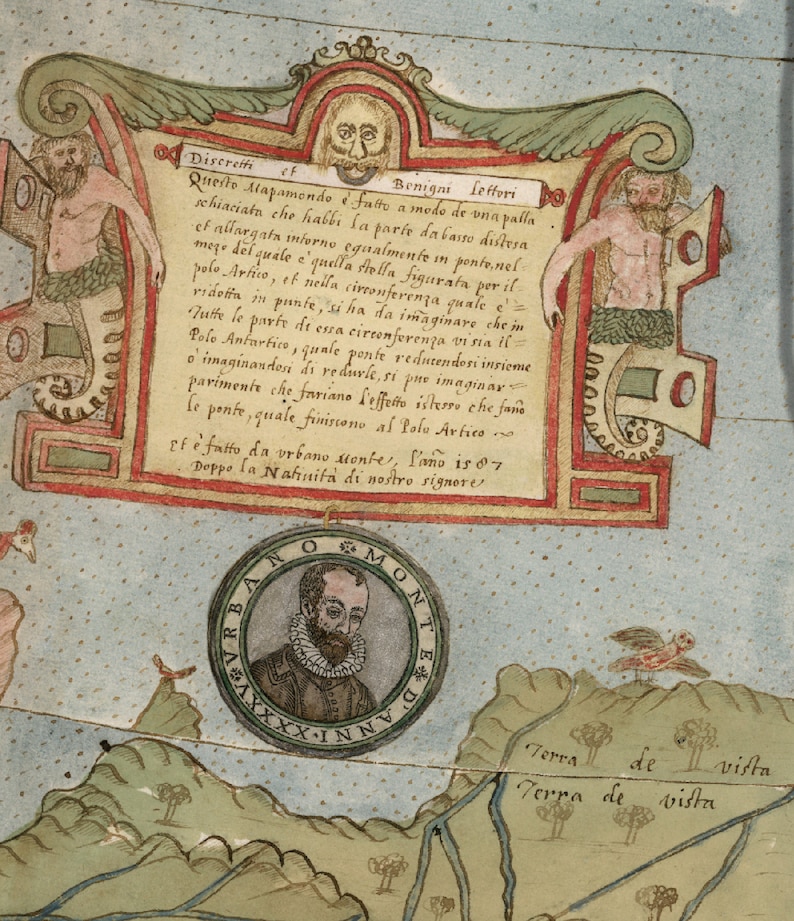 Discretti et Benigni Lettori
Questo Mapamondo è fatto a modo de vna palla
schiaciata che habbi la parte da basso distesa
et allargata intorno egualmente in ponte, nel=
mezo del quale è quella stella figurata per il=
polo Artico, et nella circonferenza quale è=
ridotta in punte, si ha da imaginare che in
Tutte le parte di essa circonferenza vi sia il=
Polo Antartico, quale ponte reducendosi insieme
o imaginandosi di redurle, si puo imaginar=
parimente che fariano l'effetto istesso che fano
le ponte, quale finiscono al Polo Artico ~
Et è fatto da vrbano Monte, l'ano 1587
Doppo la Natiuità di nostro signore
VRBANO MONTE D'ANNI XXXXV
Terra de vista
Terra de vista